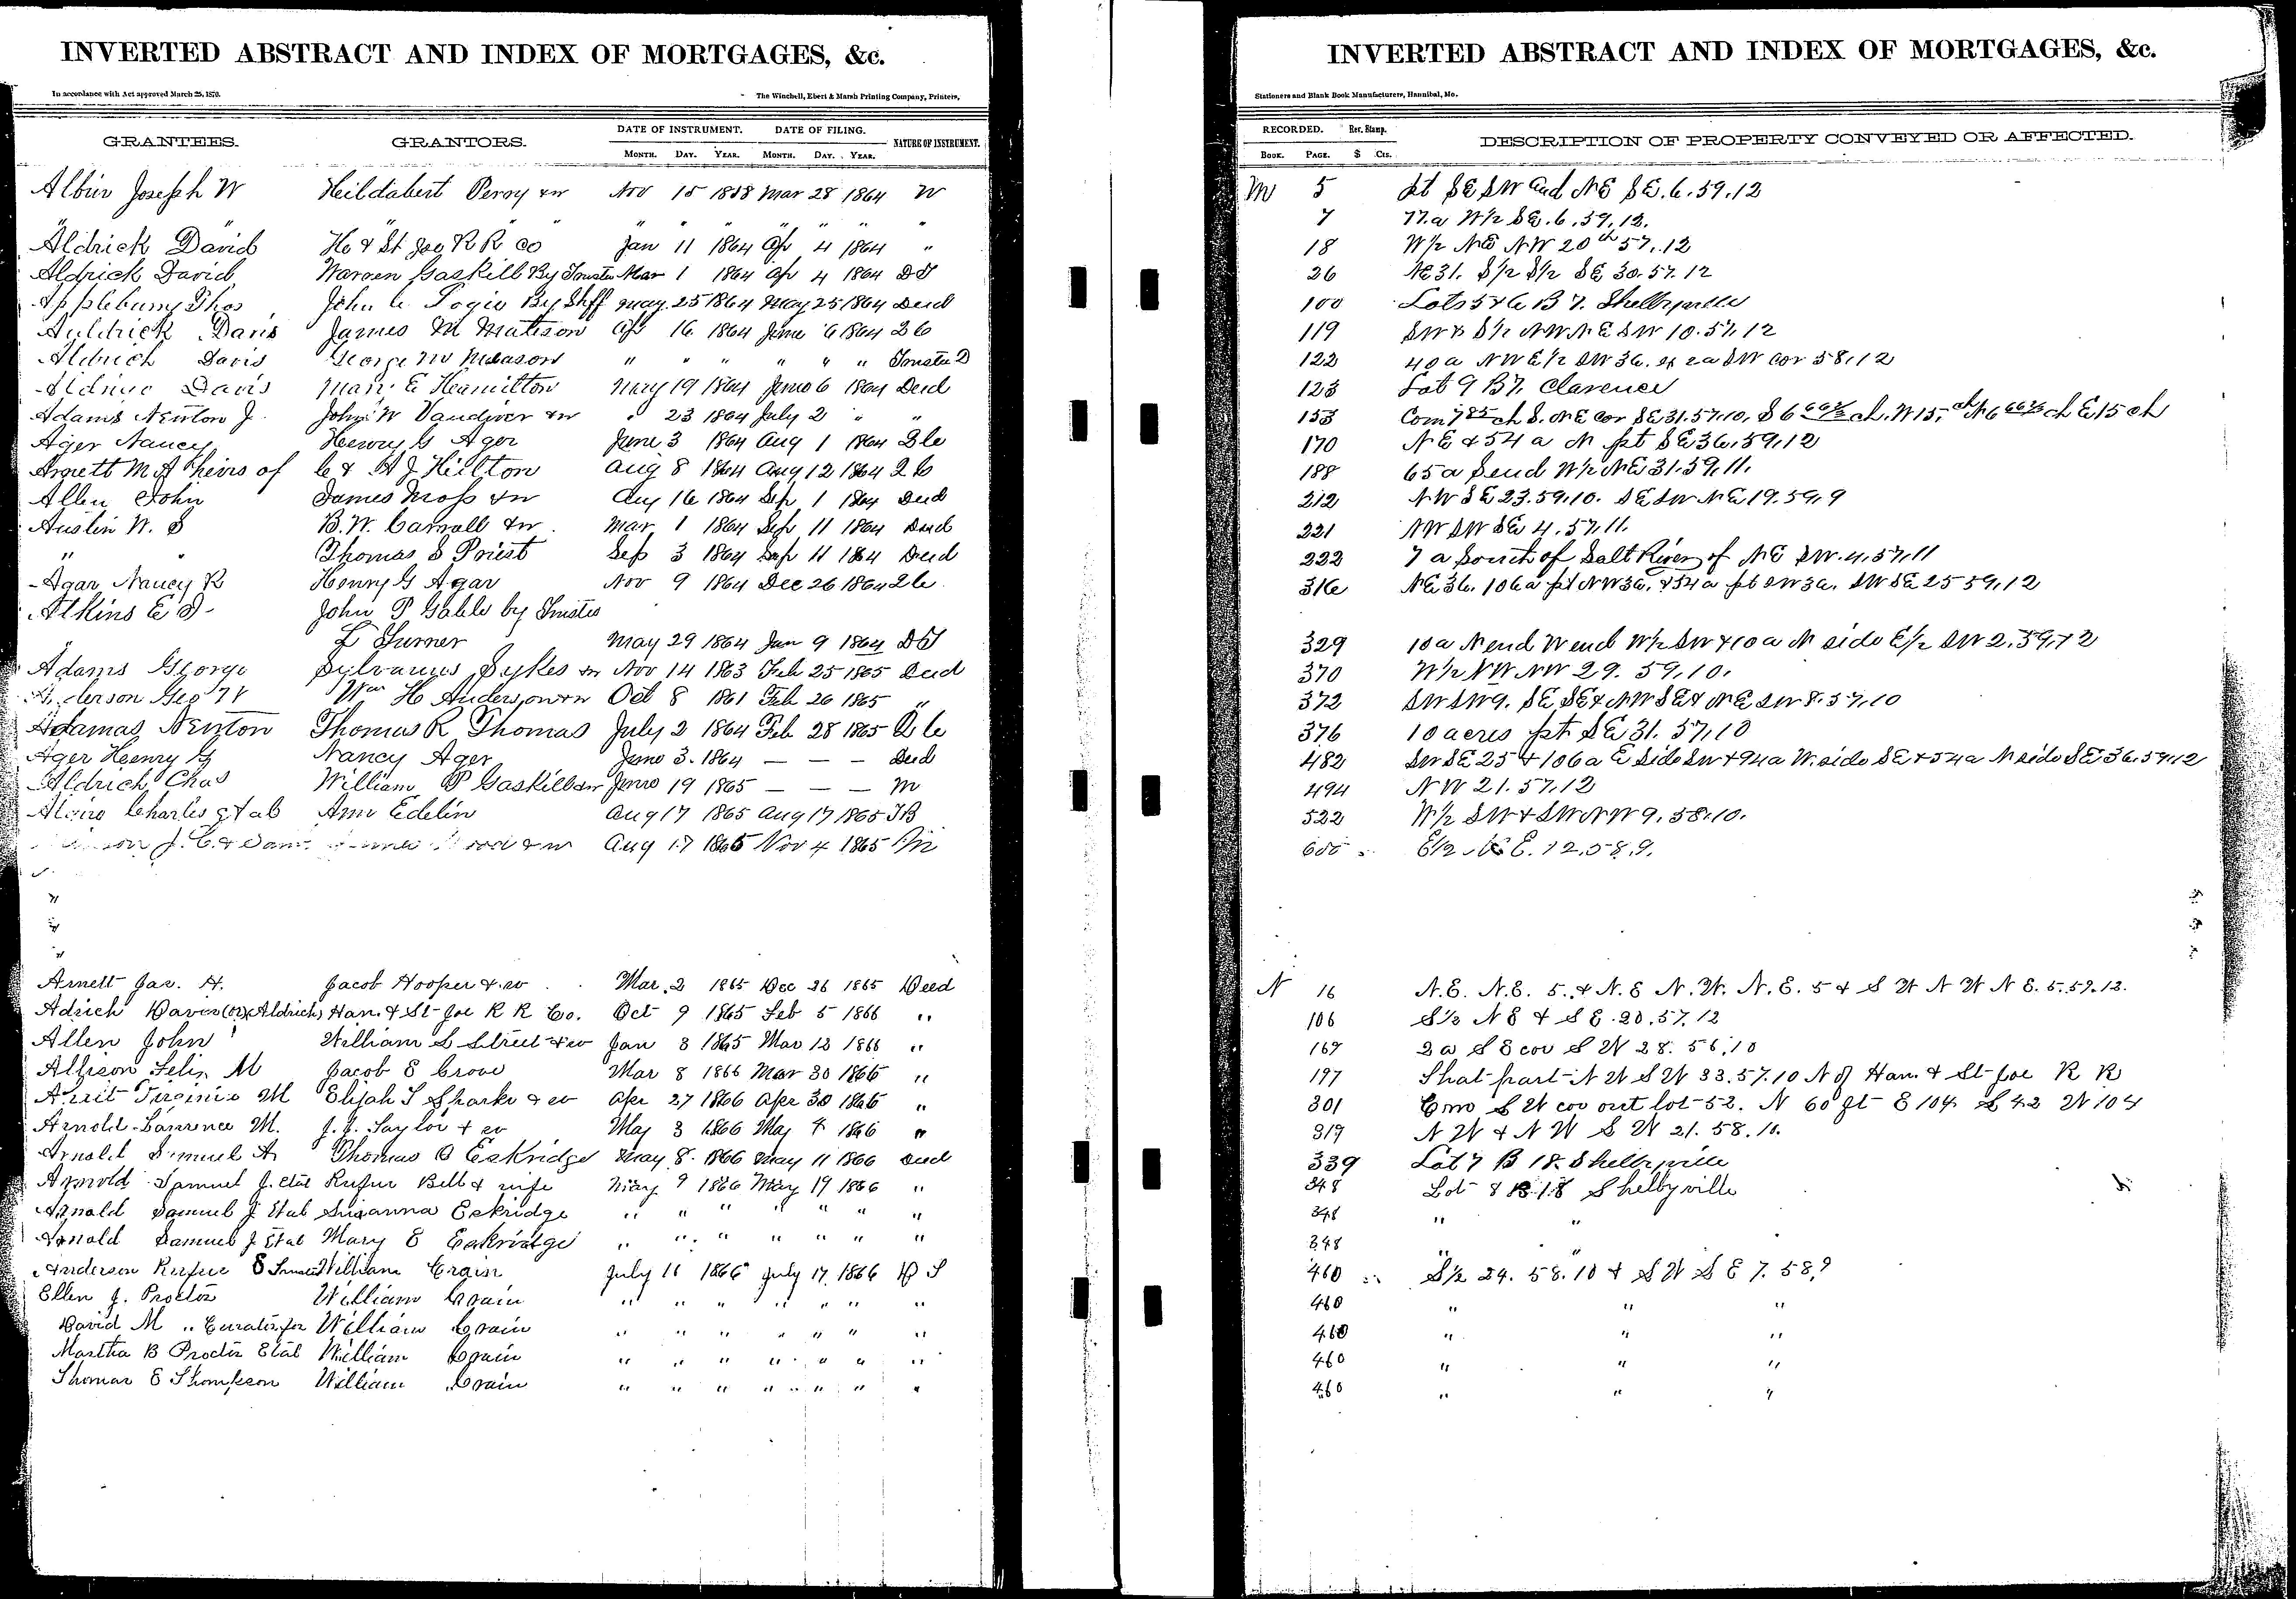 INVERTED ABSTRACT AND INDEX OF MORTGAGES, &c.
In accordance with Act approved March 25, 1870.
The Winchell, Ebert & Marsh Printing Company, Printers,
GRANTEES. GRANTORS. DATE OF INSTRUMENT. DATE OF FILING. NATURE OF INSTRUMENT.
MONTH. DAY. YEAR. MONTH. DAY. YEAR.
Albier Joseph W Heildabert Percy &w Nov 15 1858 Mar 28 1864 W
" " " " " " " " "
Aldrick David H & St Joe R R Co Jan 11 1864 Ap 4 1864 "
Aldrick David Warren Gaskill By Trustee Mar 1 1864 Ap 4 1864 DT
Applebury Thos John C By Shff May 25 1864 May 25 1864 Deed
Auldrick Davis James M Matison Ap 16 1864 June 6 1864 2 C
Aldrich Davis George W " " " " " " Trustee D
Davis Mary E Hamilton May 19 1864 June 6 1864 Deed
Adams Newton J. John W Vandiver &w " 23 1864 July 2 " "
Ager Nancy Henry G Ager June 3 1864 Aug 1 1864 2 C
Arnett M A heirs of C & A J Hilton Aug 8 1864 Aug 12 1864 2 C
Allen John James Moss &w Aug 16 1864 Sep 1 1864 Deed
Austin W. S B. W. Carroll &w Mar 1 1864 Sep 11 1864 Deed
" " Thomas S Priest Sep 3 1864 Sep 11 1864 Deed
Agar Nancy R Henry G Agar Nov 9 1864 Dec 26 1864 2 C
Atkins E D John P Gable by Trustee
L Turner May 29 1864 Jan 9 1864 DT
Adams George Sylvanus Sykes &w Nov 14 1863 Feb 25 1865 Deed
Anderson Geo W Wm H Anderson &w Oct 8 1861 Feb 26 1865 "
Adamas Newton Thomas R Thomas July 2 1864 Feb 28 1865 Q C
Ager Henry G Nancy Ager June 3. 1864 — — — Deed
Aldrich Chas William P Gaskill &w June 19 1865 — — — M
Charles et al Ann Edelin Aug 17 1865 Aug 17 1865 TB
J. C. & Aug 17 1865 Nov 4 1865
"
"
"
Arnett Jas. H. Jacob Hooper & w Mar. 2 1865 Dec 26 1865 Deed
Adrich Davis (or Aldrich) Han. & St Joe R R Co. Oct 9 1865 Feb 5 1866 "
Allen John William S Street & w Jan 3 1865 Mar 13 1866 "
Allison Felix M Jacob E Crow Mar 8 1866 Mar 30 1866 "
Virginia M Elijah T Sharke & w Apr 27 1866 Apr 30 1866 "
Arnold Lawrence M. J. J. Taylor & w May 3 1866 May 4 1866 "
Arnold Samuel A Thomas O Eskridge May 8. 1866 May 11 1866 Deed
Arnold Samuel J. etal Rufus Bell & wife May 9 1866 May 19 1866 "
Arnold Samuel J Etal Susanna Eskridge " " " " " " "
Arnold Samuel J Etal Mary E Eskridge " " " " " " "
Anderson Rufus E Trustee William Crain July 16 1866 July 17 1866 D T
Ellen J. Proctor William Crain " " " " " " "
David M " Curator for William Crain " " " " " " "
Martha B Proctor Etal William Crain " " " " " " "
Thomas E Thompson William Crain " " " " " " "
INVERTED ABSTRACT AND INDEX OF MORTGAGES, &c.
Stationers and Blank Book Manufacturers, Hannibal, Mo.
RECORDED. Rev. Stamp. DESCRIPTION OF PROPERTY CONVEYED OR AFFECTED.
BOOK. PAGE. $ Cts.
M 5 pt SE SW and NE SE. 6. 59. 12
7 77.a W½ SE. 6. 59. 12.
18 W½ NE NW 20th 57. 12
26 NE 31. S½ S½ SE 30. 57. 12
100 Lots 5 & 6 B 7. Shelbyville
119 SW & S½ NW NE SW 10. 57. 12
122 40 a NW E½ SW 36. ex 2 a SW cor 58. 12
123 Lot 9 B 7. Clarence
153 Com 7 85 ch S. NE cor SE 31. 57. 10, S 6 66⅔ ch. W 15, ch N 6 66⅔ ch E 15 ch
170 NE & 54 a N pt SE 36. 59. 12
188 65 a S end W½ NE 31. 59. 11.
212 NW SE 23. 59. 10. SE SW NE 19. 59. 9
221 NW SW SE 4. 57. 11.
222 7 a South of Salt River of NE SW. 4. 57. 11
316 NE 36. 106 a pt NW 36. & 54 a pt SW 36. SW SE 25 59. 12
329 10 a N end W end W½ SW & 10 a N side E½ SW 2. 59. 12
370 W½ NW NW 29. 59. 10.
372 SW SW 9. SE SE & NW SE & NE SW 8. 57. 10
376 10 acres pt SE 31. 57. 10
482 SW SE 25 & 106 a E side SW & 94 a W. side SE & 54 a N side SE 36. 59. 12
494 NW 21. 57. 12
522 W½ SW & SW NW 9. 58. 10.
E½ NE. 12. 58. 9.
N 16 N.E. N.E. 5. & N.E N.W. N.E. 5 & S W N W N E. 5. 59. 12.
106 S½ N E & S E. 20. 57. 12
169 2 a S E cor S W 28. 58. 10
197 That part N W S W 33. 57. 10 N of Han. & St Joe R R
301 Com S W cor out lot 52. N 60 ft E 104 S 42 W 104
319 N W & N W S W 21. 58. 10.
339 Lot 7 B 18. Shelbyville
348 Lot 8 B. 18 Shelbyville
348 " "
348 " "
460 S½ 24. 58. 10 & S W S E 7. 58. 9
460 " " "
460 " " "
460 " " "
460 " " "